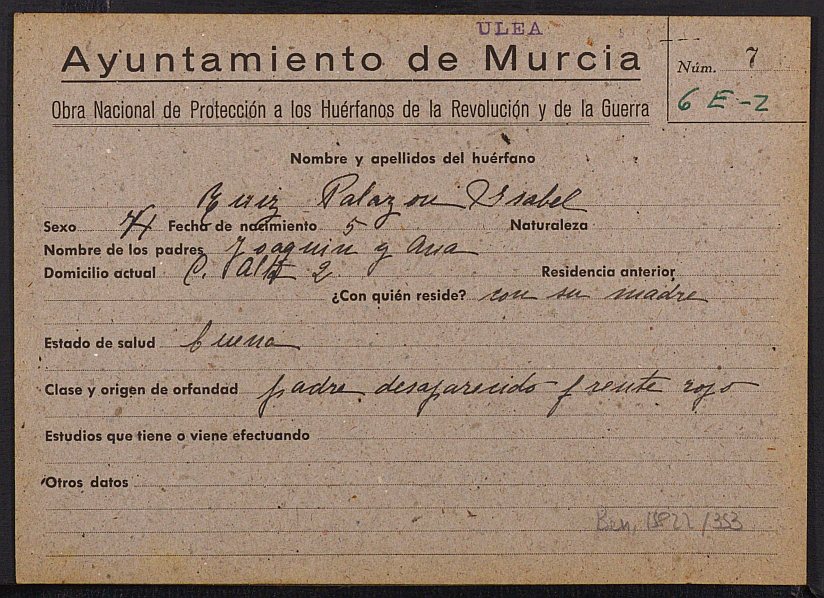 ULEA
Ayuntamiento de Murcia
Núm. 7
6 E-2
Obra Nacional de Protección a los Huérfanos de la Revolución y de la Guerra
Nombre y apellidos del huérfano
Ruiz Palazon Ysabel
Sexo H Fecha de nacimiento 5 Naturaleza
Nombre de los padres Joaquin y Ana
Domicilio actual C. Alta 2 Residencia anterior
¿Con quién reside? con su madre
Estado de salud buena
Clase y origen de orfandad padre desaparecido frente rojo
Estudios que tiene o viene efectuando
Otros datos
Ben, 15822/353